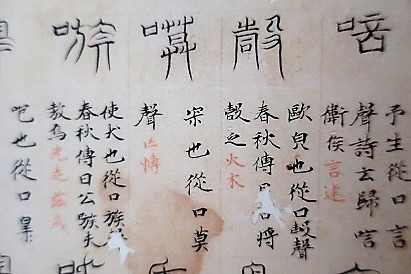 唁
弔生從口言
聲詩云歸唁
衛侯 言建
㱿
歐皃也從口㱿聲
春秋傳曰君將
㱿之 火木
嗼
宋也從口莫
聲 亡博
嗾
使犬也從口族
春秋傳曰公嗾夫
獒焉
咆也從口皋